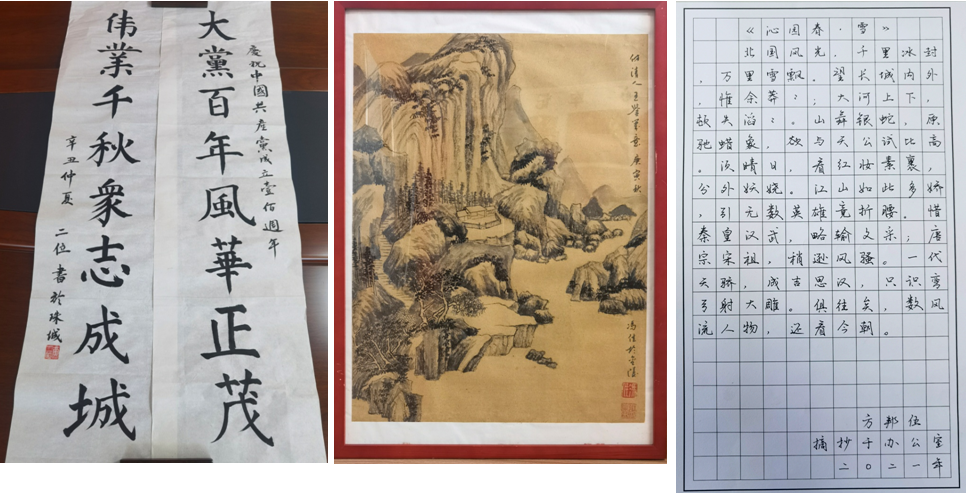 慶祝中國共産黨成立壹佰週年
大黨百年風華正茂
伟業千秋衆志成城
辛丑仲夏
二位書於珠城
仿清人王筆意 庚寅秋
《沁园春·雪》
北国风光，千里冰封
，万里雪飘。望长城内外
，惟余莽々；大河上下，
顿失滔々。山舞银蛇，原
驰蜡象，欲与天公试比高
。须晴日，看红妆素裹，
分外妖娆。江山如此多娇
，引无数英雄竞折腰。惜
秦皇汉武，略输文采；唐
宗宋祖，稍逊风骚。一代
天骄，成吉思汉，只识弯
弓射大雕。俱往矣，数风
流人物，还看今朝。
方邦位
摘抄于办公室
二〇二一年